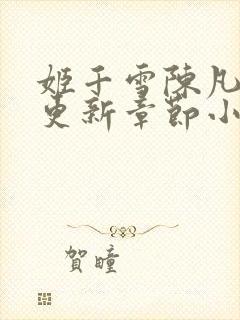 姬于雪陳凡
更新章節小
賀瞳